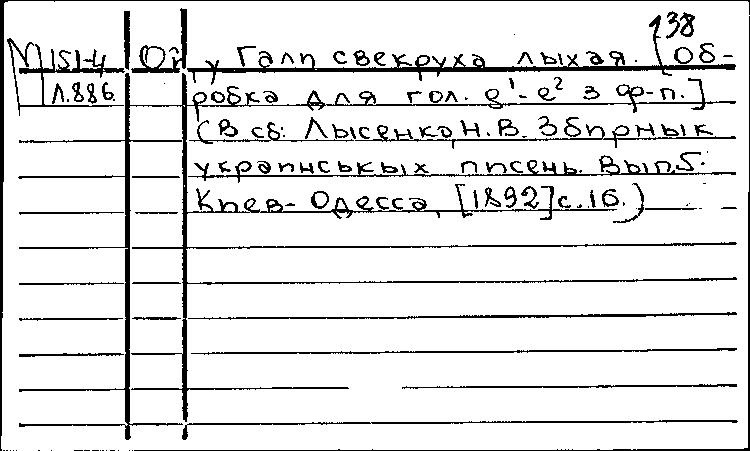 138
М 151-4 Ой у Гали свекруха лыхая. [Об-
Л.886. робка для гол. d¹-e² з ф-п.]
(В сб: Лысенко, Н.В. Збирнык
украинськых писень. Вып.5.
Киев-Одесса, [1892] с.16.)